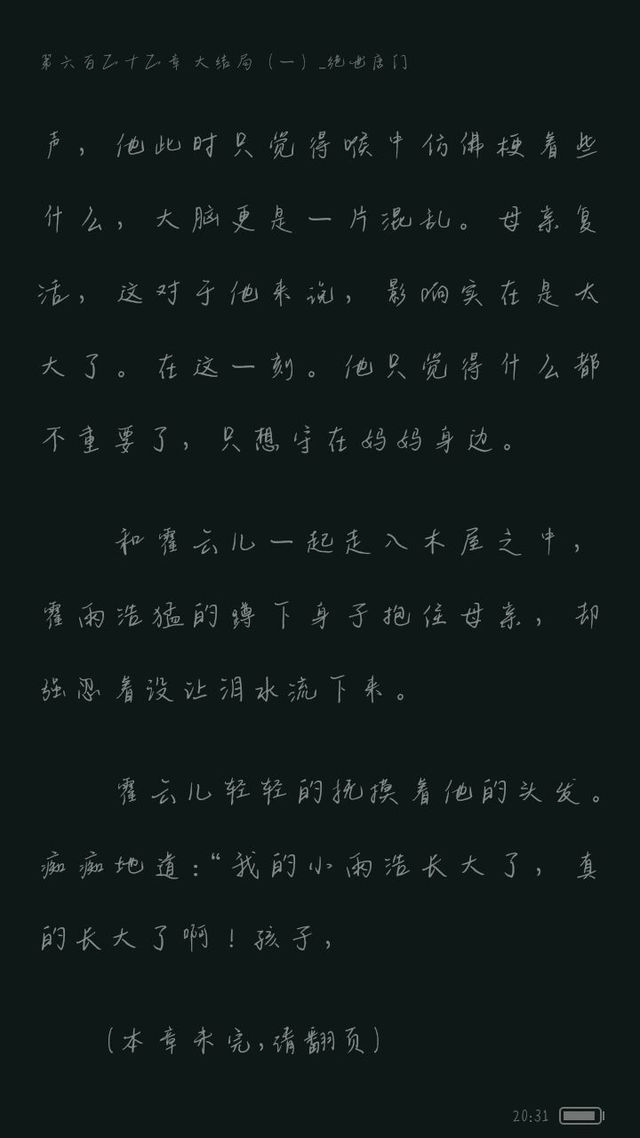 第六百五十五章 大结局（一）_绝世唐门
声，他此时只觉得喉中仿佛梗着些
什么，大脑更是一片混乱。母亲复
活，这对于他来说，影响实在是太
大了。在这一刻。他只觉得什么都
不重要了，只想守在妈妈身边。
和霍云儿一起走入木屋之中，
霍雨浩猛的蹲下身子抱住母亲，却
强忍着没让泪水流下来。
霍云儿轻轻的抚摸着他的头发。
痴痴地道：“我的小雨浩长大了，真
的长大了啊！孩子，
（本章未完，请翻页）
20:31